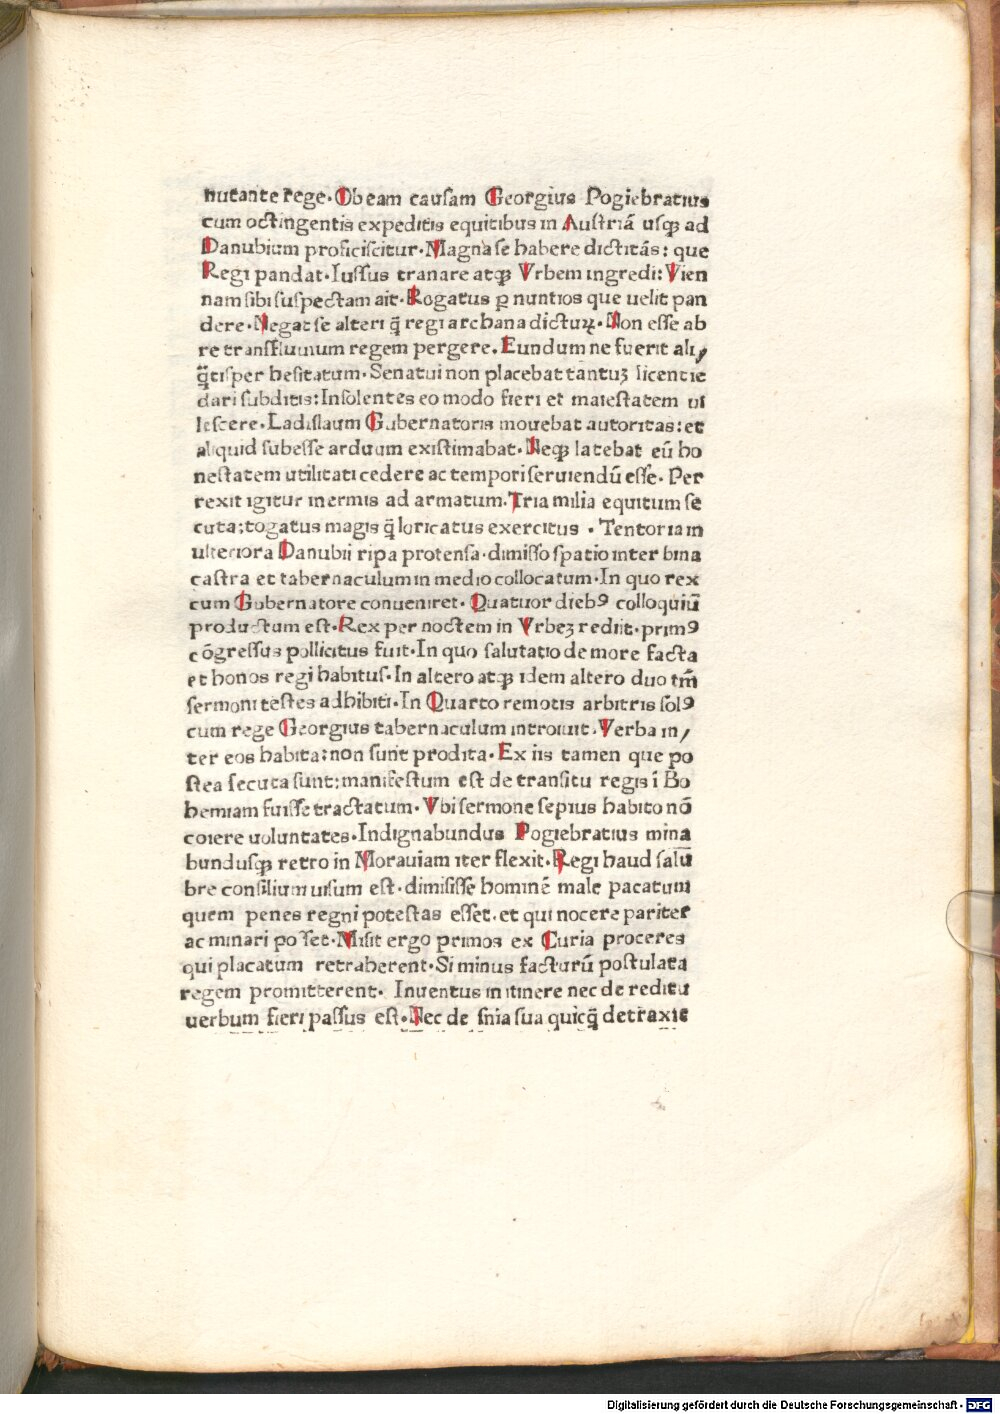 nutante rege. Ob eam causam Georgius Pogiebratius
cum octingentis expeditis equitibus in Austriā usqꝫ ad
Danubium proficiscitur. Magna se habere dictitās: que
Regi pandat. Iussus tranare atqꝫ Vrbem ingredi: Vien
nam sibi suspectam ait. Rogatus ꝑ nuntios que uelit pan
dere. Negat se alteri q̄ regi archana dicturꝝ. Non esse ab
re transfluuium regem pergere. Eundum ne fuerit ali/
q̄tisper hesitatum. Senatui non placebat tantuꝫ licentie
dari subditis: Insolentes eo modo fieri et maiestatem ui
lescere. Ladislaum Gubernatoris mouebat autoritas: et
aliquid subesse arduum existimabat. Neqꝫ latebat eū ho
nestatem utilitati cedere ac tempori seruiendū esse. Per
rexit igitur inermis ad armatum. Tria milia equitum se
cuta; togatus magis q̄ loricatus exercitus . Tentoria in
ulteriora Danubii ripa protensa. dimisso spatio inter bina
castra et tabernaculum in medio collocatum. In quo rex
cum Gubernatore conueniret. Quatuor diebꝰ colloquiū
productum est. Rex per noctem in Vrbeꝫ rediit. primꝰ
cōgressus pollicitus fuit. In quo salutatio de more facta
et honos regi habitus. In altero atqꝫ idem altero duo tm̄
sermoni testes adhibiti. In Quarto remotis arbitris solꝰ
cum rege Georgius tabernaculum introiuit. Verba in/
ter eos habita: non sunt prodita. Ex iis tamen que po
stea secuta sunt: manifestum est de transitu regis ī Bo
hemiam fuisse tractatum. Vbi sermone sepius habito nō
coiere uoluntates. Indignabundus Pogiebratius mina
bundusqꝫ retro in Morauiam iter flexit. Regi haud salu
bre consilium uisum est. dimisisse hominē male pacatum
quem penes regni potestas esset. et qui nocere pariter
ac minari posset. Misit ergo primos ex Curia proceres
qui placatum retraherent. Si minus facturū postulata
regem promitterent. Inuentus in itinere nec de reditu
uerbum fieri passus est. Nec de snia sua quicq̄ detraxit
Digitalisierung gefördert durch die Deutsche Forschungsgemeinschaft - DFG